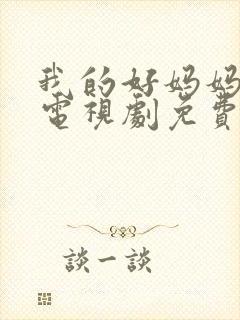 我的好妈妈
電視劇免費
談一談